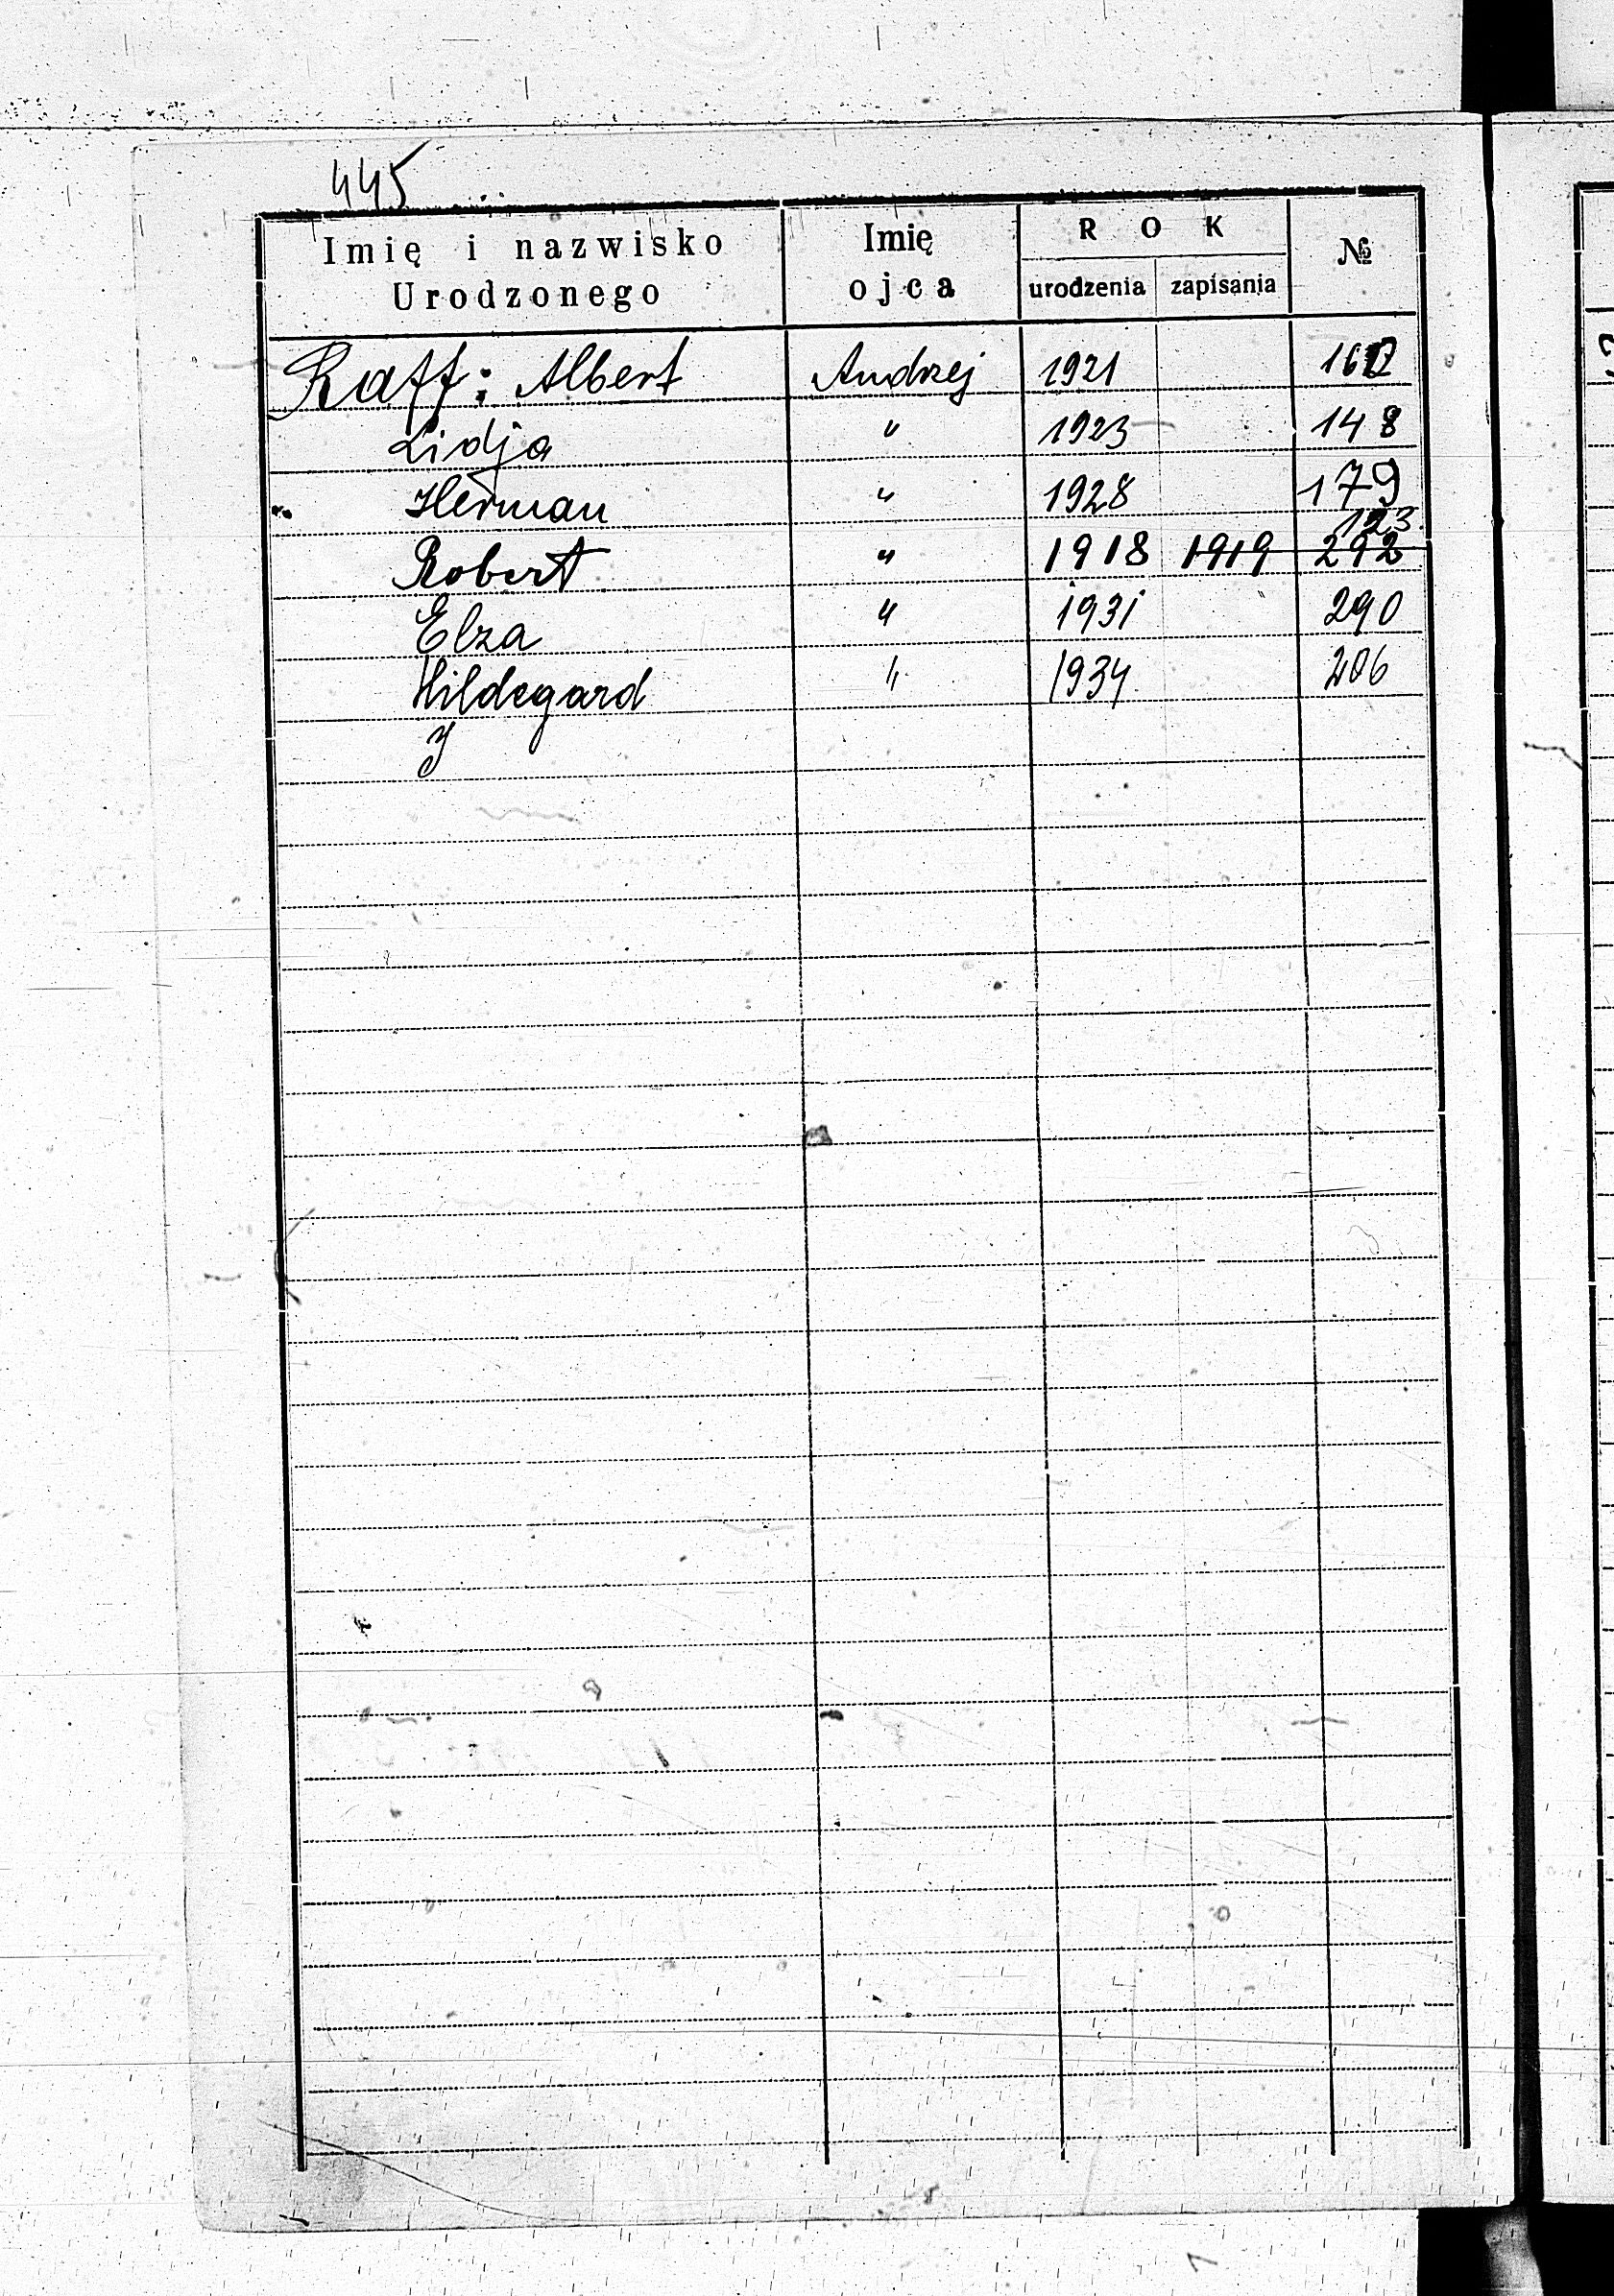 445
Imię i nazwisko Urodzonego
Imię ojca
ROK
urodzenia zapisania
№
Raff: Albert Andrzej 1921
Lidja " 1923 148
Herman " 1928 179
123
Robert " 1918 1919 292
Elza " 1931 290
Hildegard " 1934 206
J